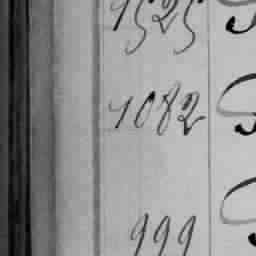 1525
1082
999